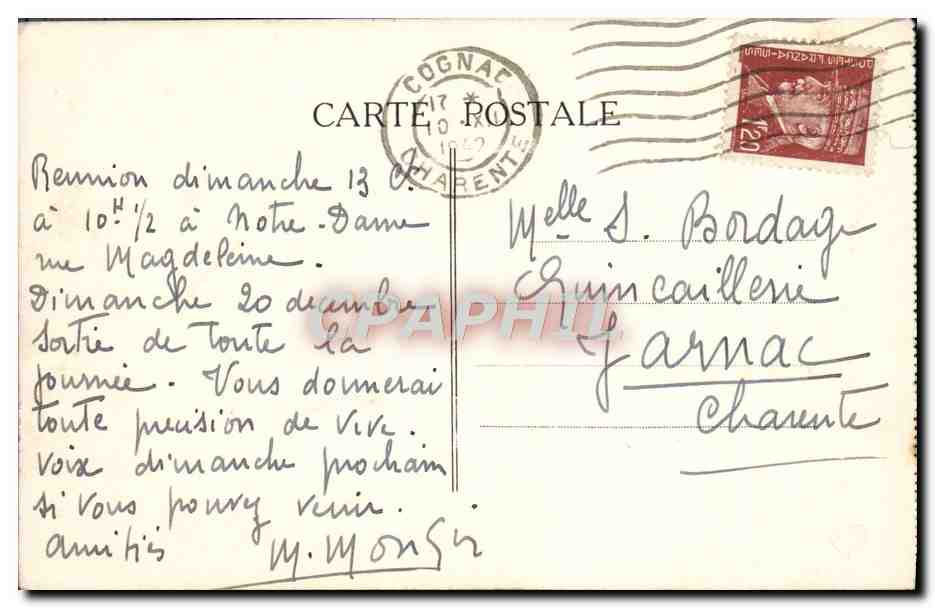 CARTE POSTALE
COGNAC
17 *
10 XI
1942
CHARENTE
POSTES FRANÇAISES
1F20
Reunion dimanche 13 C.
à 10H 1/2 à Notre-Dame
rue Magdeleine.
Dimanche 20 decembre
sortie de toute la
journée. Vous donnerai
toute precision de vive.
voix dimanche prochain
si vous pouvez venir.
amitiés
Melle S. Bordage
Quincaillerie
Jarnac
Charente
CPAPHIL